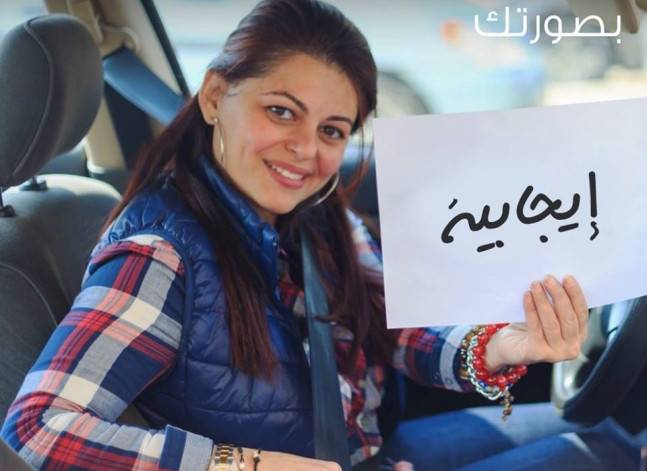 بصورتك
إيجابية